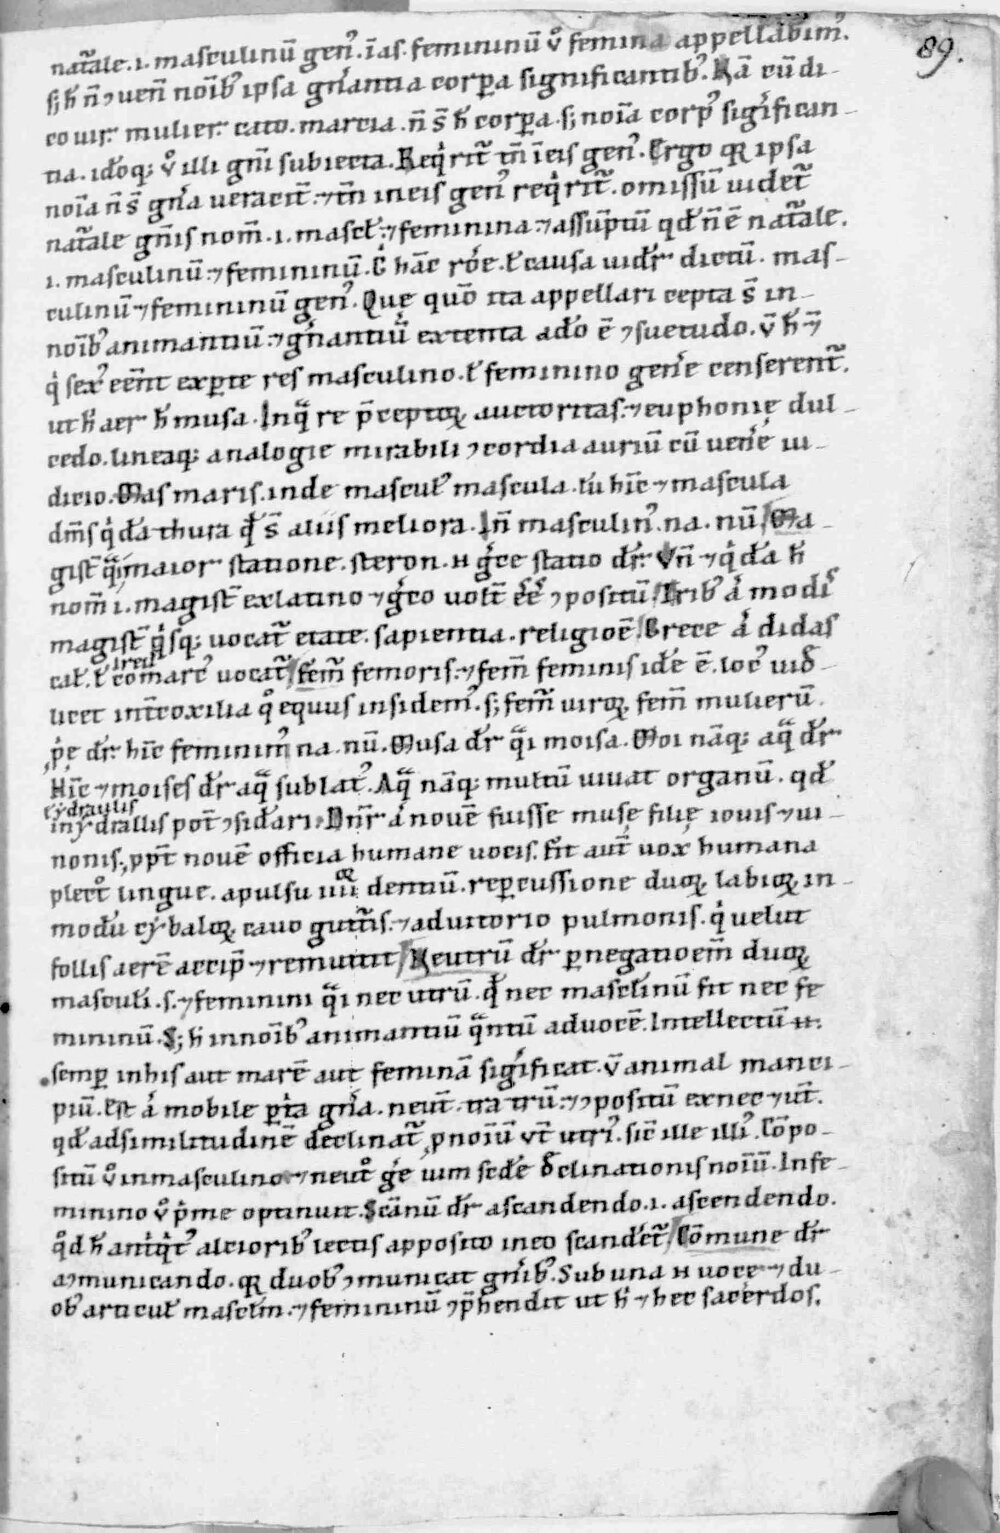 89.
nat̄ale .i. masculinū gen᷒. īas. femininū ů femina appellabim᷒.
s; h̄ n̄ ꝯuen̄ noīb᷒ ipsa gn̄antia corpa significantib᷒. Nā cū di-
co uir. mulier. cato. marcia. n̄ s̄ h̄ corpa. s; noīa corp᷒ significan-
tia. idoq; ů illi gn̄i subiecta. Reqͥrit᷑ tn̄ ī eis gen᷒. Ergo qꝛ ipsa
noīa n̄ s̄ gn̄a ueracit̄. ⁊ tn̄ in eis gen᷒ reqͥrit᷑. omissū uidet᷑
nat̄ale gn̄is nom̄. i. mascł. ⁊ feminina. ⁊ assūptū qđ n̄ ē nat̄ale.
.i. masculinū ⁊ femininū. G hāc rōe. ł causa uidr̄ dictū. mas-
culinū ⁊ femininū gen᷒. Quę quō ita appellari cepta s̄ in
noīb᷒ animantiū. ⁊ gn̄antiū extenta ado ē ꝯsuetudo. ů h̄ ⁊
qͥ sex᷒ eēnt experte res masculino. ł feminino gene censerent᷑.
ut h̄ aer h̄ musa. Inq̄ re p̄ceptoꝝ auctoritas. ⁊ euphonię dul-
cedo. lineaq; analogie mirabili ꝯcordia auriū cū uenē iu-
dicio. Mas maris. inde mascul᷒ mascula. łu hīc ⁊ mascula
dm̄s qͥda thura qđ s̄ aliis meliora. In̄ masculin᷒. na. nū. Ma-
gist̄ q̄i maior statione. steron. н gͥce statio dr̄. Vn̄ ⁊ qͥda h̄
nom̄ .i. magist̄ ex latino ⁊ gͥco uolt̄ eē ꝯpositū. Trib᷒ aͥ modis
magist̄ qͥsq; uocat᷑ etate. sapientia. religioē. Grece aͥ didas
cał. ł comarc᷒ uocat᷑. Fem᷑ femoris. ⁊ fem̄ feminis ide ē. loc᷒ uid̄
licet int̄ coxilia qͦ equus insidem᷒. s; fem᷑ uiroꝝ. fem̄ mulierū.
ꝓpe dr̄. hīc feminin᷒ na. nū. Musa dr̄ q̄i moisa. Moi nāq; aq̄ dr̄
Hīc ⁊ moises dr̄ aq̄ sublat᷒. Aq̄ nāq; multū uiuat organū. qđ
hydraulis
in ydrallis pot̄ ꝯsidari. Dnr̄ aͥ nouē fuisse muse filię iouis ⁊ iu-
nonis. ꝓpt̄ nouē officia humane uocis. fit aut̄ uox humana
plectͦ lingue. apulsu iiiioꝝ dentiū. repercussione duoꝝ labioꝝ in
modū cybaloꝝ. cauo guttis. ⁊ aduitorio pulmonis. qͥ uelut
follis aerē accip̄ ⁊ remittit. Neutrū dr̄ per negatioem̄ duoꝝ
masculi. s. ⁊ feminini q̄i nec utrū. qđ nec mascłinū fit nec fe
mininū. S; h̄ in noīb᷒ animantiū q̄ntū ad uocē. Intellectū н.
semp in his aut marē aut feminā significat. ů animal manci-
piū. Est aͥ mobile p tͥa gn̄a. neut̄. tra trū. ⁊ ꝯpositū ex nec ⁊ ut̄.
qđ ad similitudinē declinat᷑ ꝓnoīū ut̄ utri᷒. sic̄ ille illi᷒. Cōpo-
situ ů in masculino ⁊ neutͦ ge uim scđe đclinationis noīū. In fe-
minino ů pͥme optinuit. Scānū dr̄ a scandendo. i. ascendendo.
qͦd h̄ antiqͥt᷒ alciorib᷒ lectis apposito in eo scandet᷑. Cōmune dr̄
a ꝯmunicando. qꝛ duob᷒ ꝯmunicat gn̄ib᷒. Sub una н uoce ⁊ du-
ob᷒ articuł mascłin. ⁊ femininū ꝯp̄hendit ut h̄ ⁊ hec sacerdos.